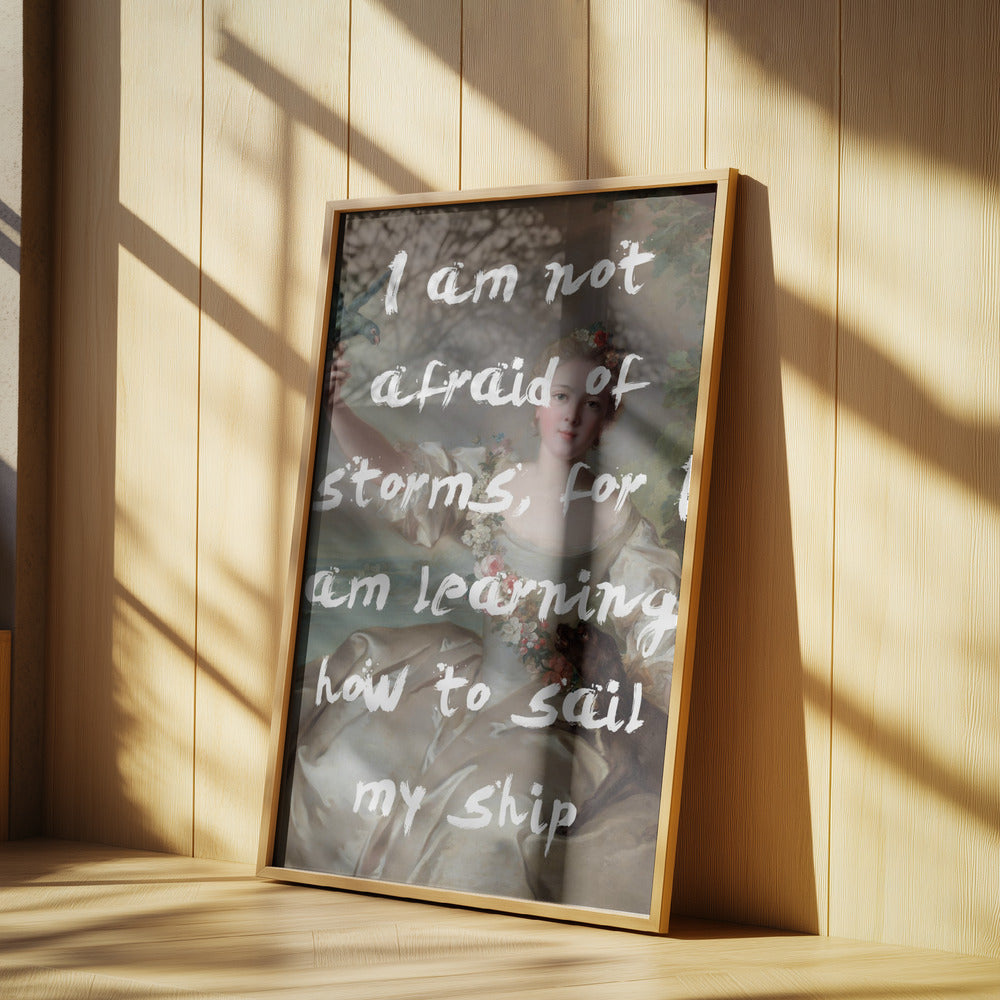 I am not
afraid of
storms, for I
am learning
how to sail
my ship